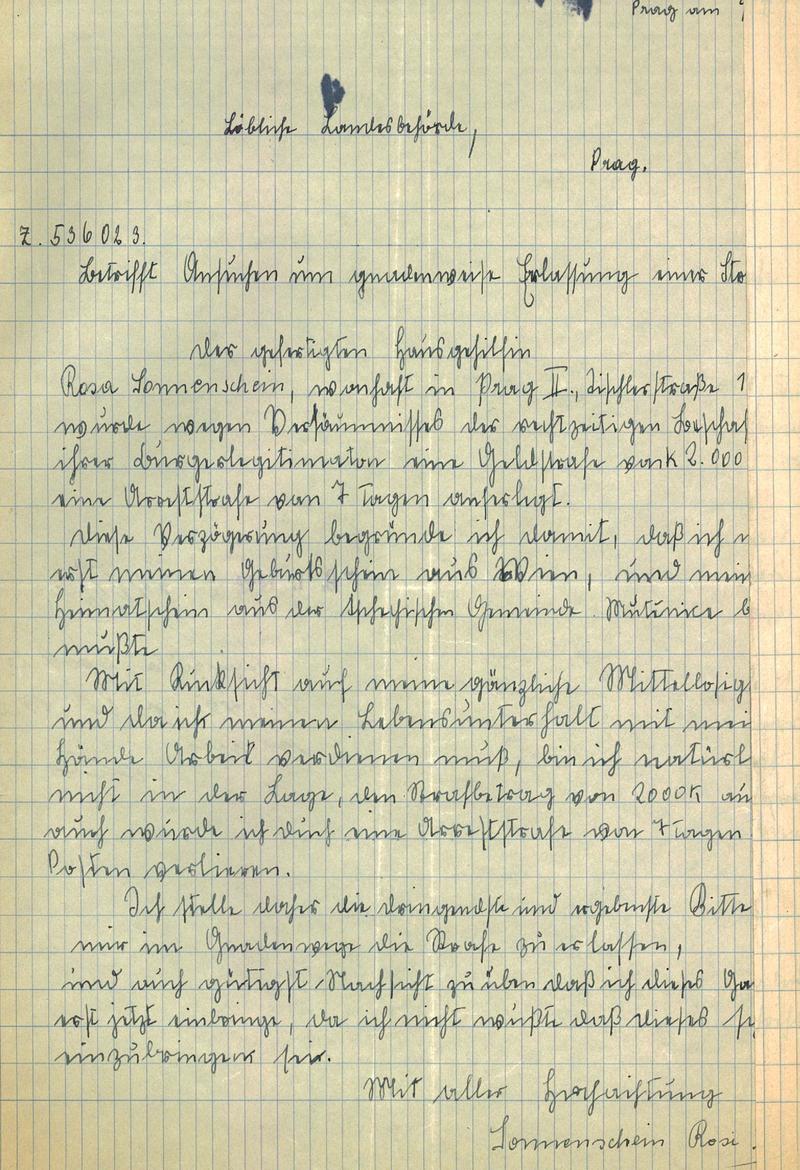 Prag am
Löbliche Landesbehörde,
Prag.
Z. 536023.
Betrifft Ansuchen um gnadenweise Erlassung einer Str
der gefertigten Hausgehilfin
Rosa Sonnenschein, wonhaft in Prag II., Tischlerstraße 1
wurde wegen Versäumnisses der rechtzeitigen Beschaf
ihrer Bürgerlegitimaton eine Geldstrafe von K 2.000
eine Arreststrafe von 7 Tagen auferlegt.
Diese Verzögerung begründe ich damit, daß ich
erst meinen Geburtsschein aus Wien, und mein
Heimatschein aus der tschechischen Gemeinde Mutěnice b
mußte
Mit Rücksicht auf meine gänzliche Mittellosig
und da ich meinen Lebensunterhalt mit mei
Hände Arbeit verdienen muß, bin ich natürl
nicht in der Lage, den Strafbetrag von 2000K au
auch würde ich duch eine Arreststrafe von 7 Tagen
Posten verlieren.
Ich stelle daher die dringendste und ergebenste Bitte
mir im Gnadenwege die Strafe zu erlassen,
und auch gütigst Nachsicht zu üben daß ich dieses Ga
erst jetzt einbringe, da ich nicht wußte daß dieses
einzubringen sei.
Mit aller Hochachtung
Sonnenschein Rosi.